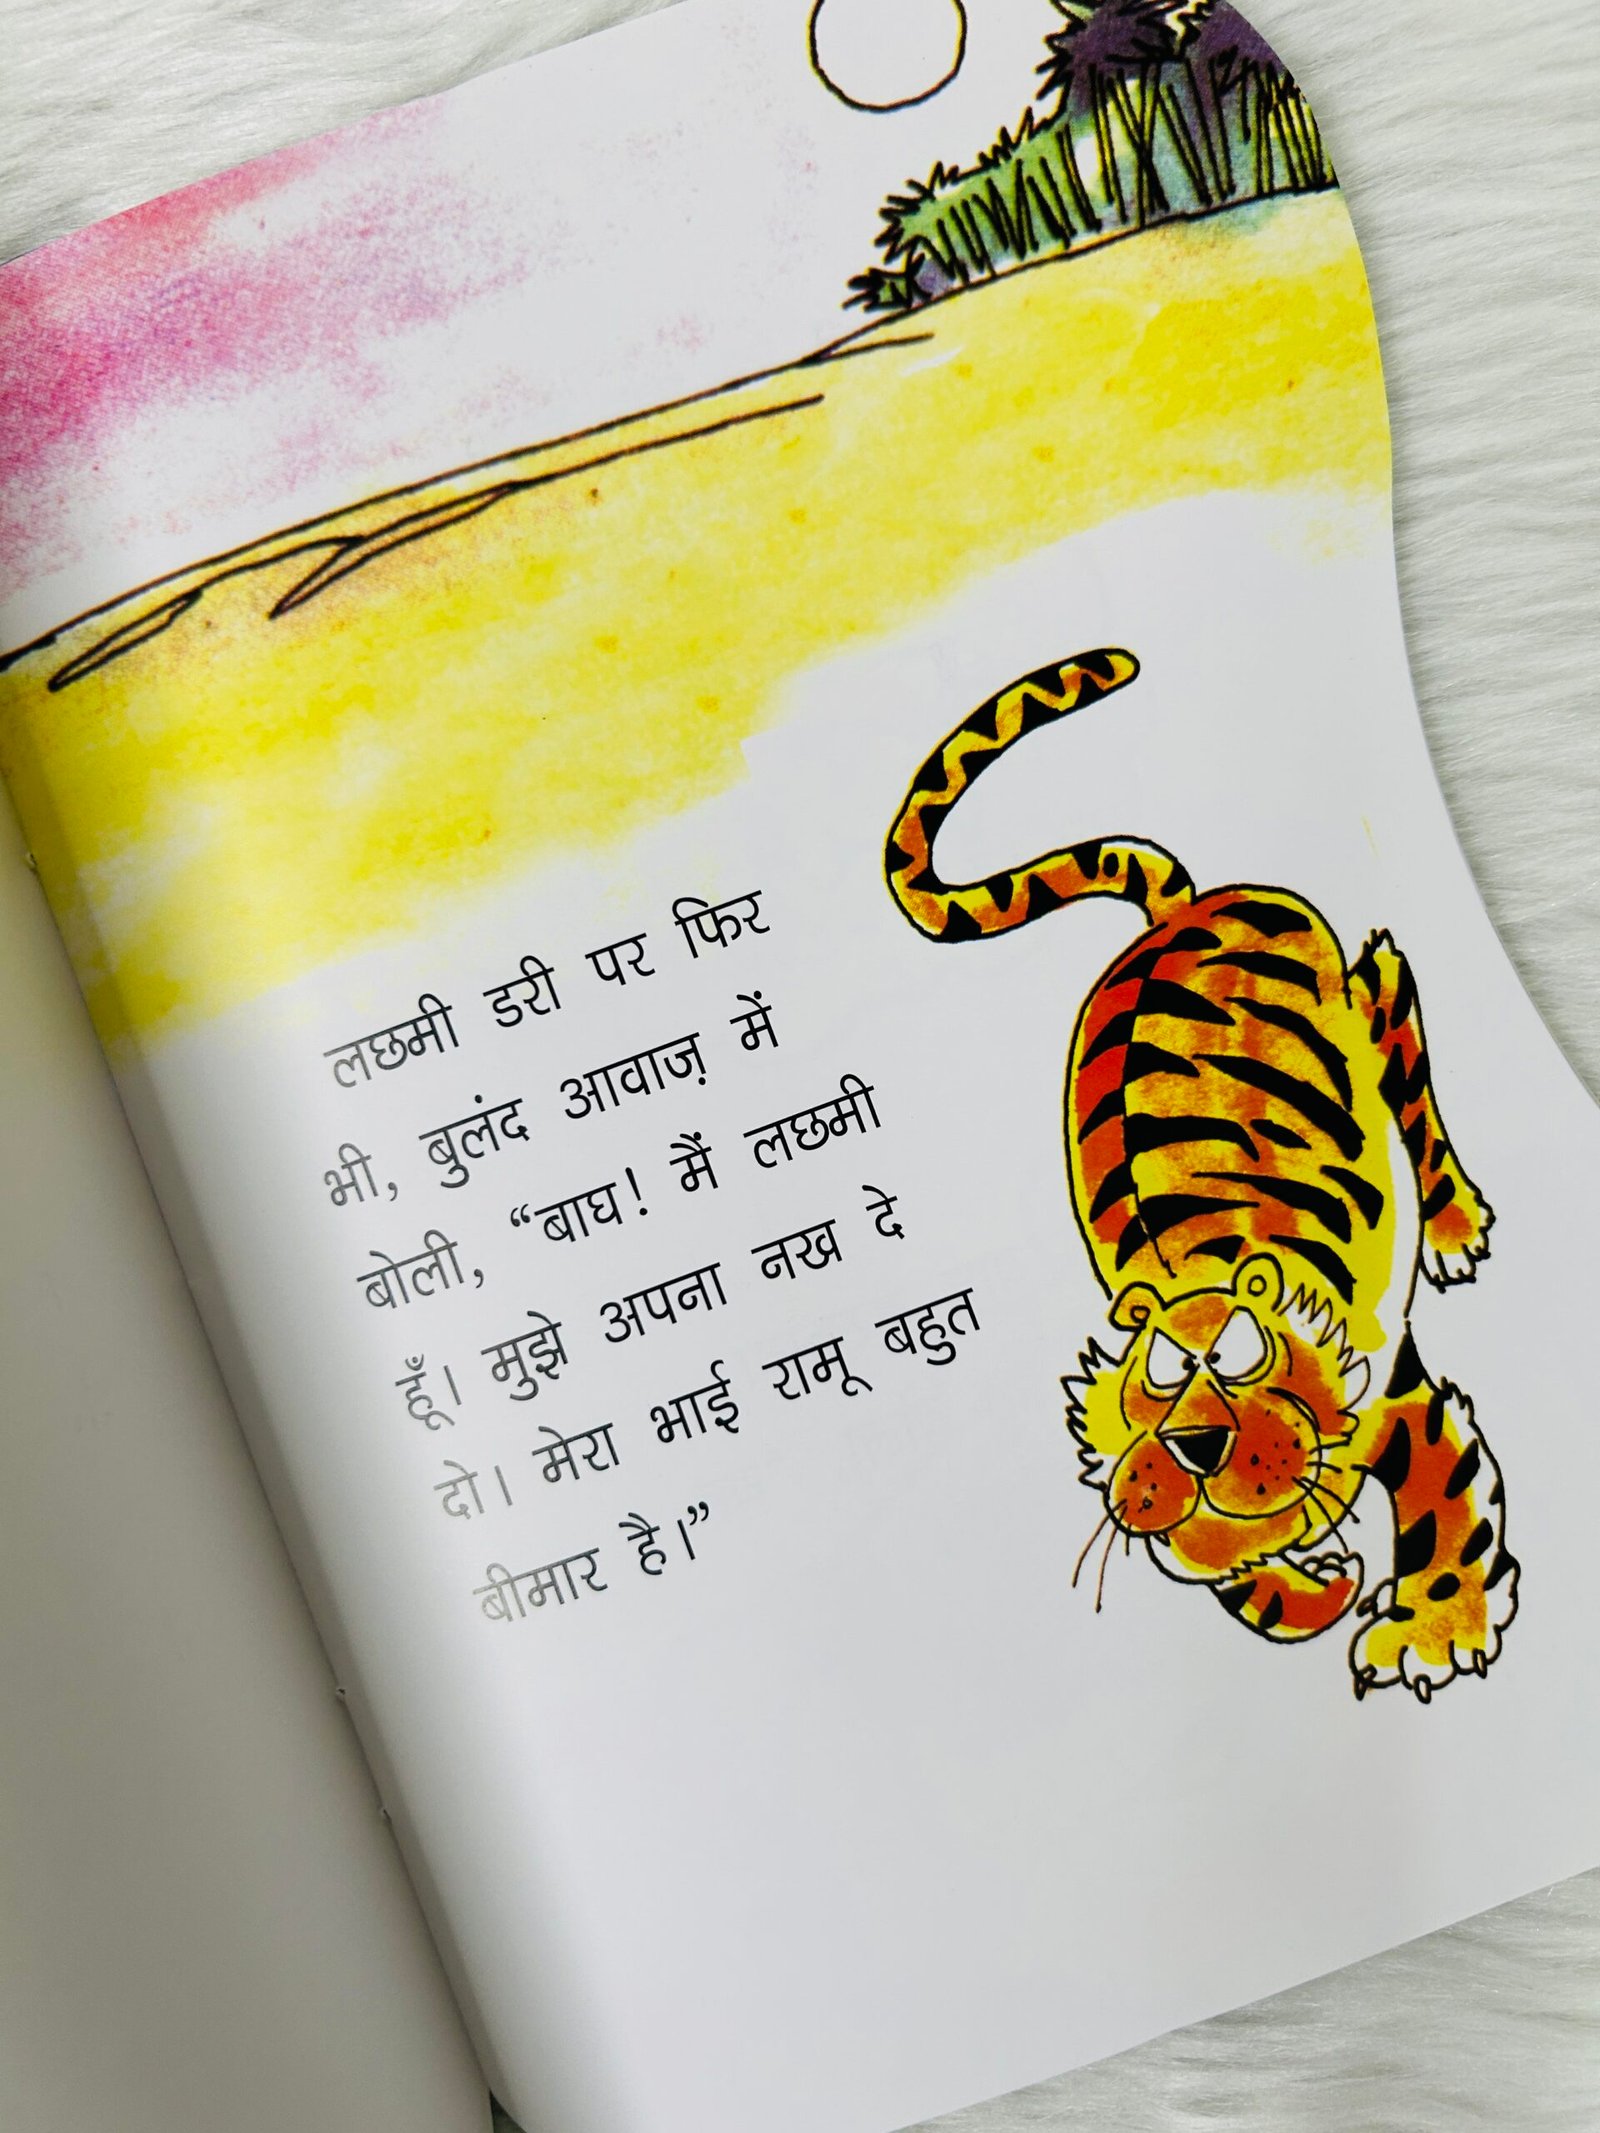 लछमी डरी पर फिर
भी, बुलंद आवाज़ में
बोली, “बाघ! मैं लछमी
हूँ। मुझे अपना नख दे
दो। मेरा भाई रामू बहुत
बीमार है।”